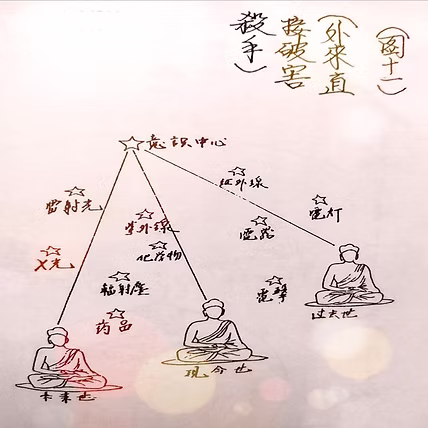 (圖十一)
(外來直
接破害
殺手)
意识中心
红外線
雷射光
電灯
紫外線
電路
化学物
X光
辐射塵
電擊
药品
过去世
现今世
未来世